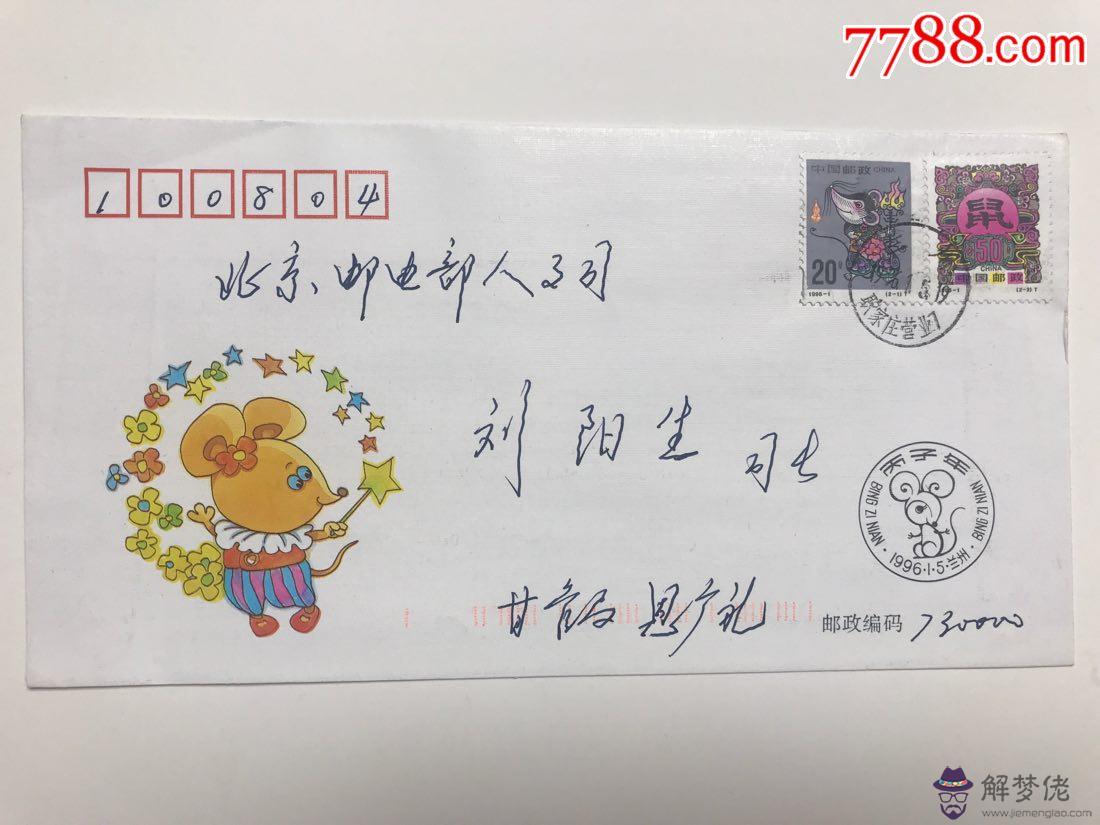 7788.com
100804
中国邮政 CHINA
20分
1996-1 (2-1)T
鼠
50分
CHINA
中国邮政
1996-1 (2-2)T
北京邮电部人事司
家庄营业
刘阳生 司长
丙子年
BING ZI NIAN · BING ZI NIAN
1996·1·5·兰州
甘管局
邮政编码 730000
解梦佬
www.jiemenglao.com